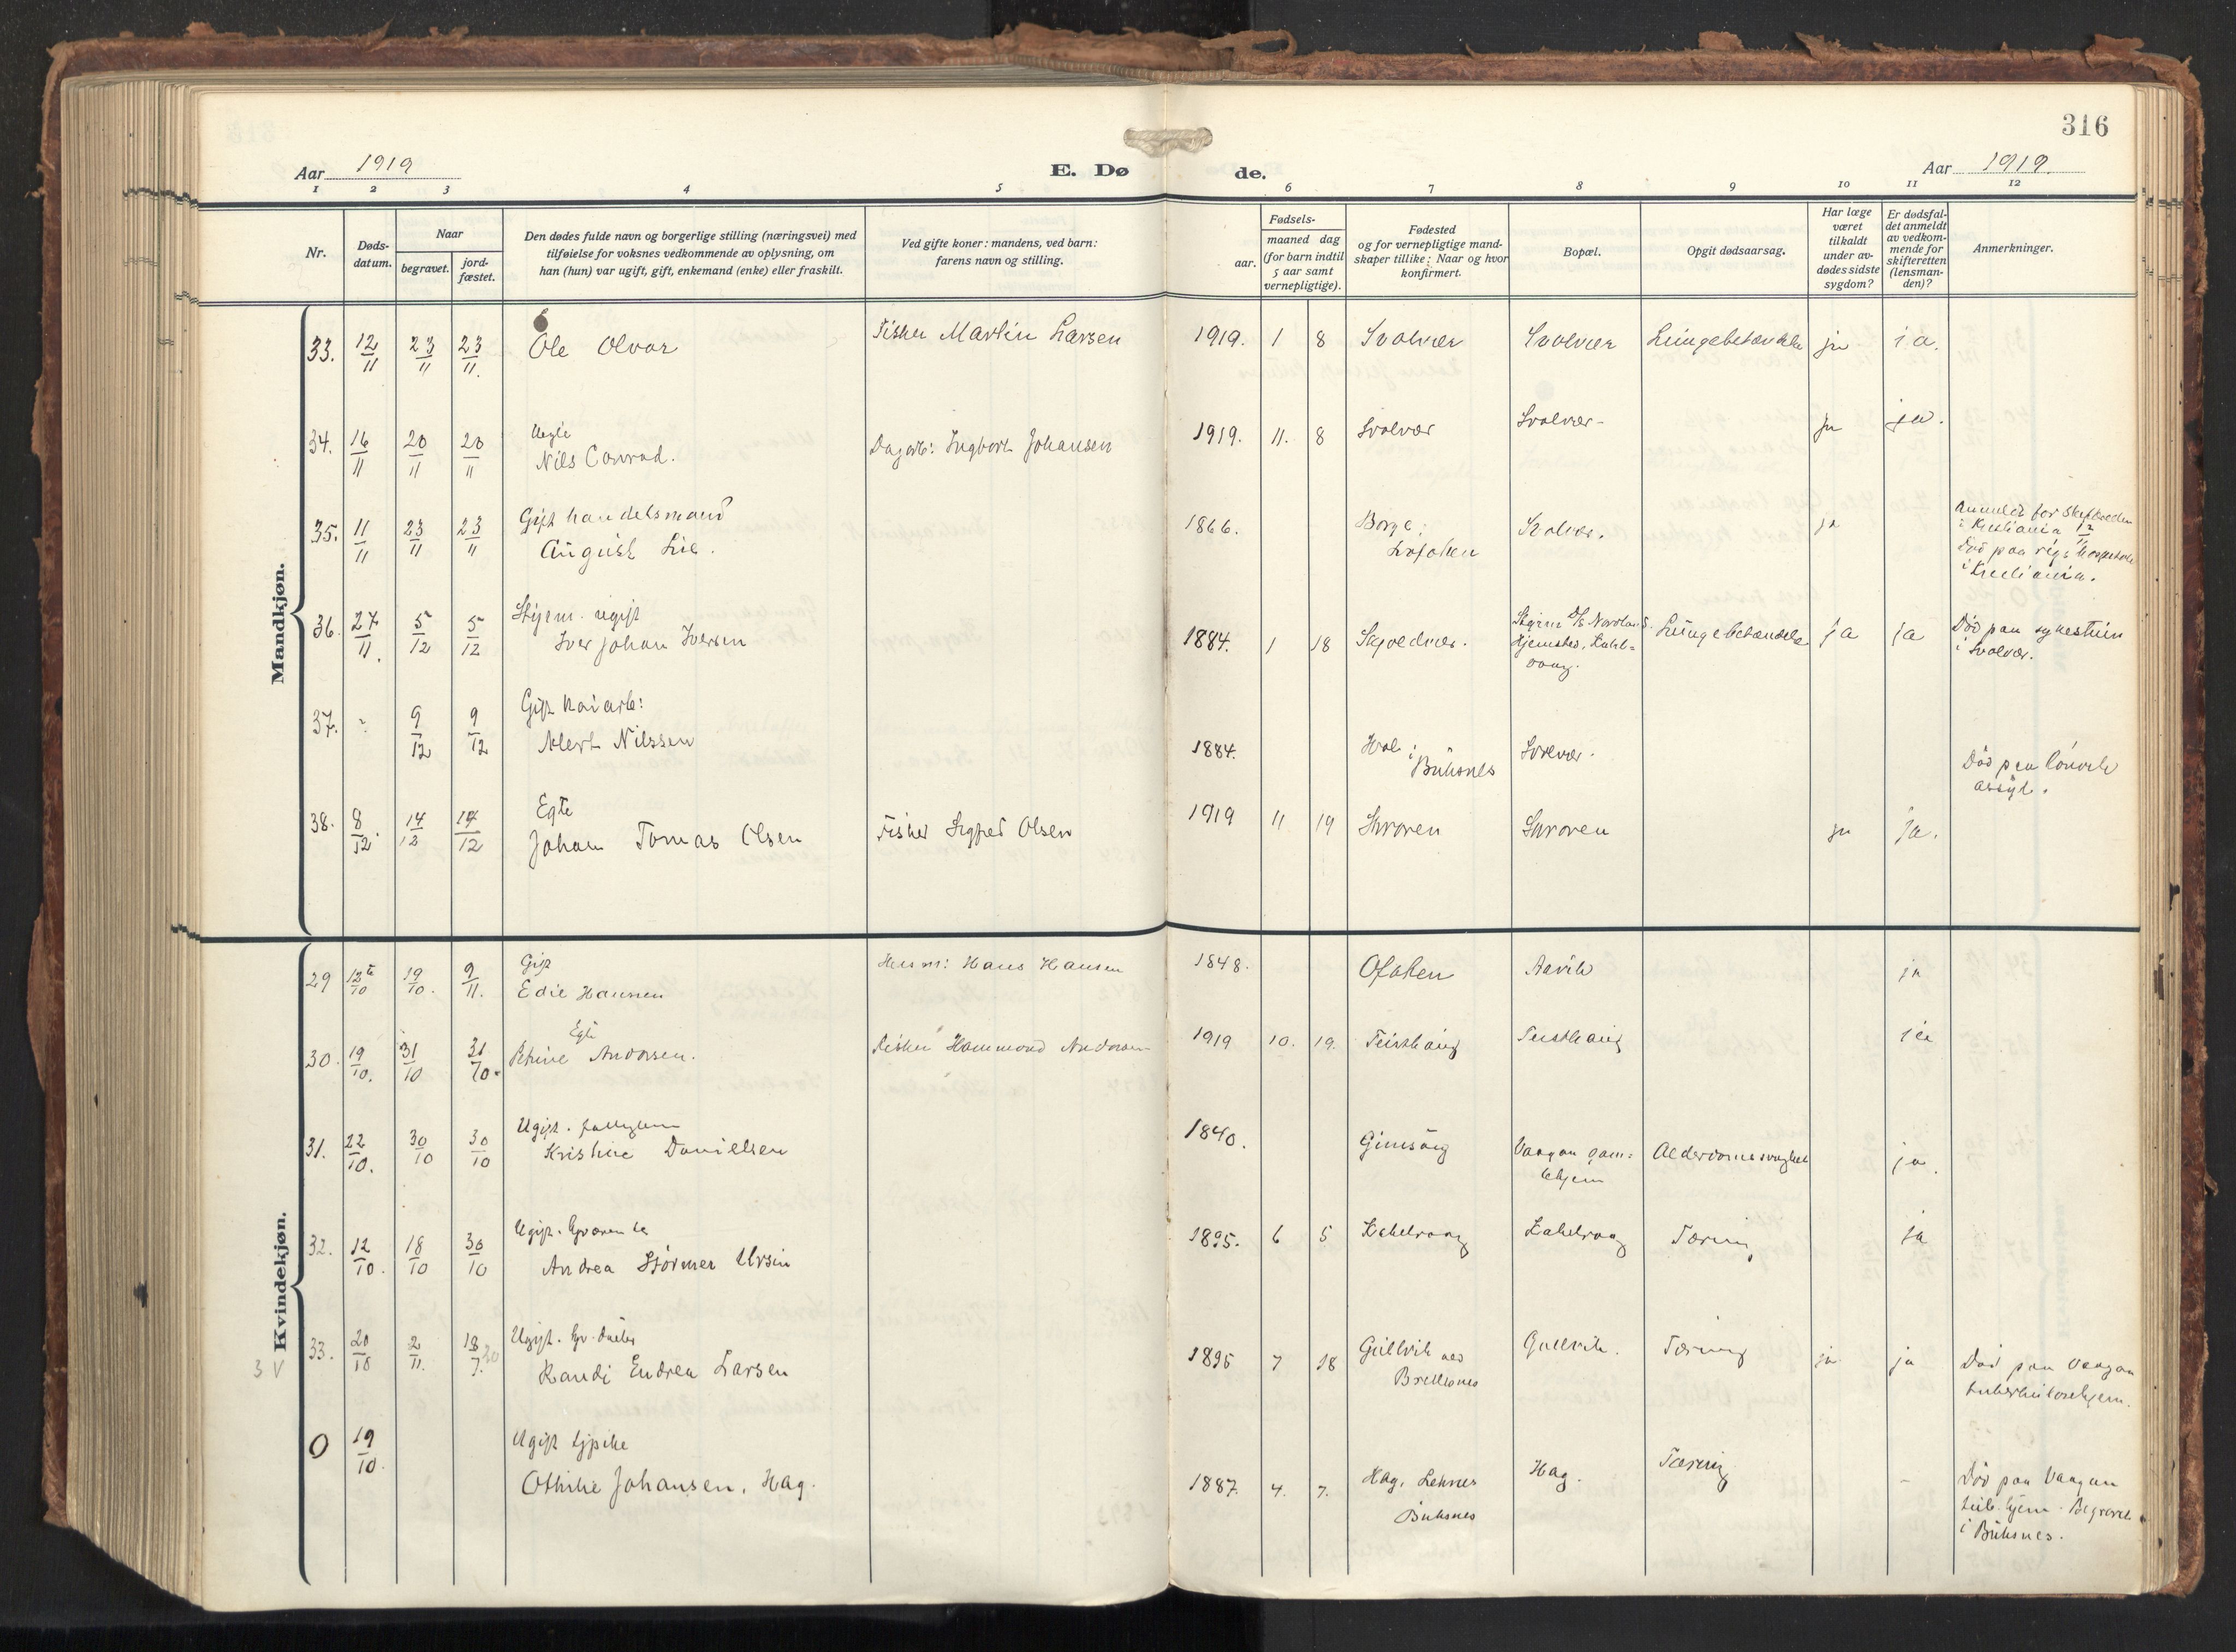 316
Aar 1919 E. Døde. Aar 1919.
1 2 3 4 5 6 7 8 9 10 11 12
Nr.
Døds-
datum.
Naar
begravet.
jord-
fæstet.
Den dødes fulde navn og borgerlige stilling (næringsvei) med
tilføielse for voksnes vedkommende av oplysning, om
han (hun) var ugift, gift, enkemand (enke) eller fraskilt.
Ved gifte koner: mandens, ved barn:
farens navn og stilling.
Fødsels-
aar.
maaned dag
(for barn indtil
5 aar samt
vernepligtige).
Fødested
og for vernepligtige mand-
skaper tillike: Naar og hvor
konfirmert.
Bopæl.
Opgit dødsaarsag.
Har læge
været
tilkaldt
under av-
dødes sidste
sygdom?
Er dødsfal-
det anmeldt
av vedkom-
mende for
skifteretten
(lensman-
den)?
Anmerkninger.
Mandkjøn.
33. 12/11 23/11 23/11. Ole Olvar Fisker Martin Larsen 1919. 1 8 Svolvær Svolvær ja ja.
34. 16/11 20/11 20/11 Uegte
Nils Conrad. Dagarb: Ingvart Johansen 1919. 11. 8 Svolvær Svolvær ja ja.
35. 11/11 23/11 23/11 Gift handelsmand
August Lie. 1866. Borge i
Lofoten Svolvær. ja
i Kristiania 12/11
Død paa rigshospitalet
i Kristiania.
36. 27/11. 5/12 5/12 Styrm. ugift
Iver Johan Iversen 1884. 1 18 Lungebetændelse ja ja
Hjemsted, Kabel-
vaag.
Død paa sykestuen
i Svolvær.
37. " 9/12 9/12 Gift kaiarb:
Nilssen 1884. Hol i
Buksnes Svolvær.
Død paa
asyl.
38. 8/12. 14/12 14/12 Egte
Johan Tomas Olsen Fisker Sigfred Olsen 1919 11 19 Skroven Skroven ja ja.
Kvindekjøn.
29 12/10 19/10. 9/11. Gift
Edie Hansen Hans Hansen 1848. Ofoten ja
30. 19/10. 31/10 31/10. Egte
Petrine Andorsen. Fisker Hammond Andorsen 1919 10. 19. ja
31. 22/10. 30/10 30/10 Ugift.
Kristine Danielsen 1840. Gimsøy Vaagan gam-
lehjem Alderdomssvaghet ja.
32. 12/10. 18/10 30/10 Ugift.
Andrea Størmer Ursin 1895. 6 5 Kabelvaag Kabelvaag Tæring ja
3 V
33. 20/10 2/11. 18/7.20 Ugift.
Randi Endrea Larsen 1895 7 18 Gullvik Tæring ja ja
Død paa Vaagan
tuberkulosehjem.
0 19/10. Ugift
Othilie Johansen, Hag. 1887. 4. 7. Hag, Leknes
Buksnes Hag. Tæring -
Død paa Vaagan
tub. hjem. Begravet
i Buksnes.